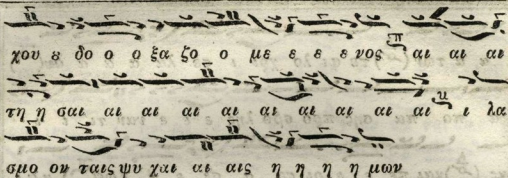 χου ȣ δο ο ο ξα ζο ο με ε ε ε νος αι αι αι
τη η σαι αι αι αι αι αι αι αι αι αι ι λα
σμο ον ταις ψυ χαι αι αις η η η η μων